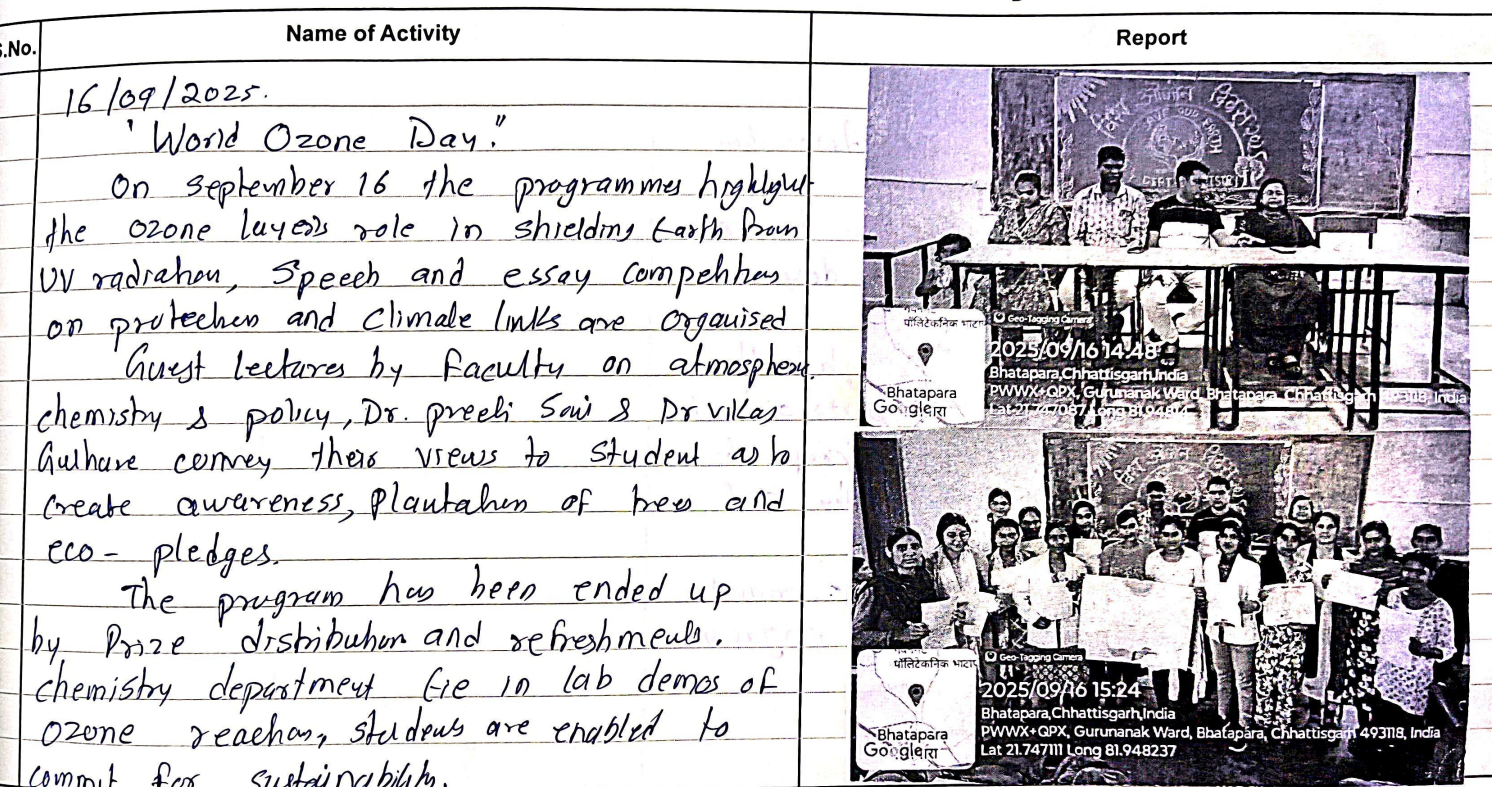 S.No.
Name of Activity
Report
16/09/2025.
"World Ozone Day."
On September 16 the programmes highlight
the ozone layers role in shielding Earth from
UV radiation, Speech and essay competitions
on protection and climate links are organised
Guest lectures by faculty on atmospheric
chemistry & policy, Dr. preeti & Dr Vikas
Gulhare convey their views to student as to
create awareness, plantation of trees and
eco - pledges.
The program has been ended up
by Prize distribution and refreshments.
chemistry department tie in lab demos of
ozone reactions, students are enabled to
commit for sustainability.
विश्व ओजोन दिवस
SAVE OUR EARTH
पॉलिटेकनिक भाटा
Geo-Tagging Camera
2025/09/16 14:48
Bhatapara,Chhattisgarh,India
PWWX+QPX, Gurunanak Ward, Bhatapara, Chhattisgarh 493118, India
Lat 21.747087 Long
Bhatapara
Google
विश्व ओजोन दिवस
पॉलिटेकनिक भाटा
Geo-Tagging Camera
2025/09/16 15:24
Bhatapara,Chhattisgarh,India
PWWX+QPX, Gurunanak Ward, Bhatapara, Chhattisgarh 493118, India
Lat 21.747111 Long 81.948237
Bhatapara
Google